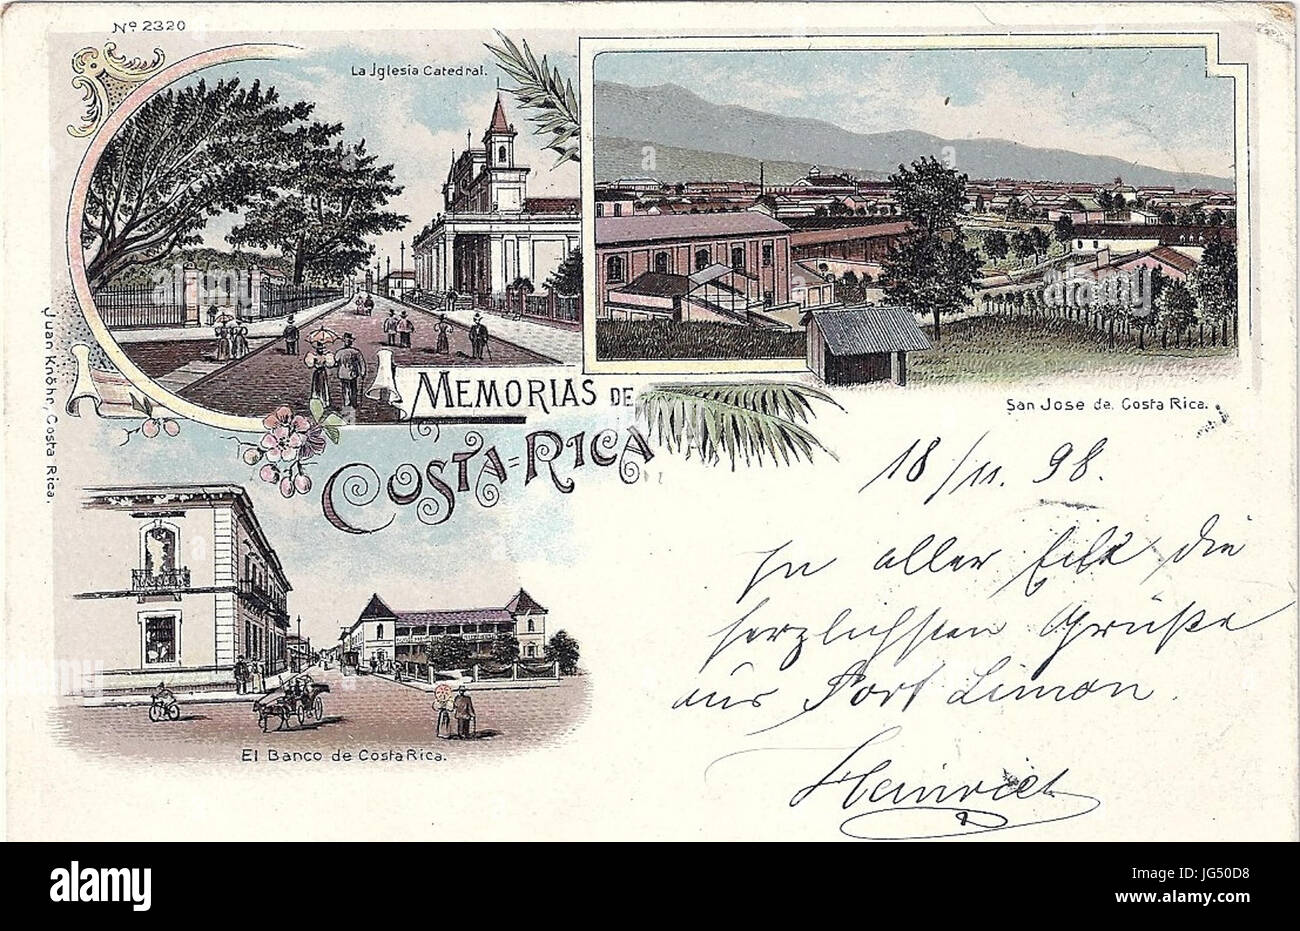 Nº 2320
La Jglesia Catedral.
San Jose de Costa Rica.
MEMORIAS DE
COSTA=RICA
Juan Knöhr, Costa Rica.
El Banco de Costa Rica.
18/11. 98.
In aller Eile die
herzlichsten Grüße
aus Port Limon.
Heinrich
a
alamy
a
a
a
a
alamy
Image ID: JG50D8
www.alamy.com